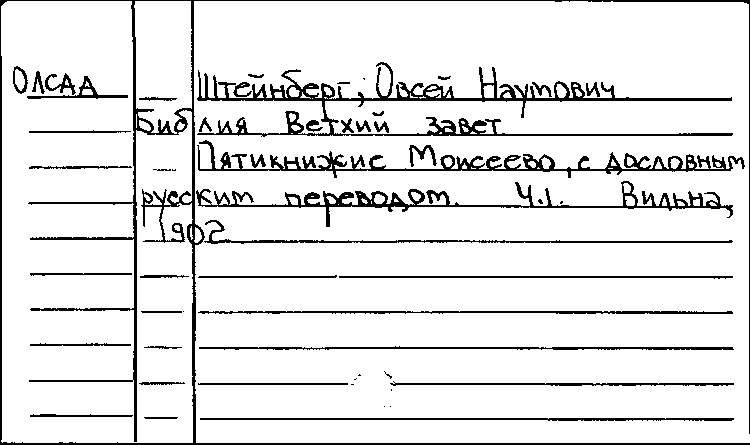 ОЛСАА Штейнберг, Овсей Наумович
Библия Ветхий завет
Пятикнижие Моисеево, с дословным
русским переводом. Ч.1. Вильна,
1902